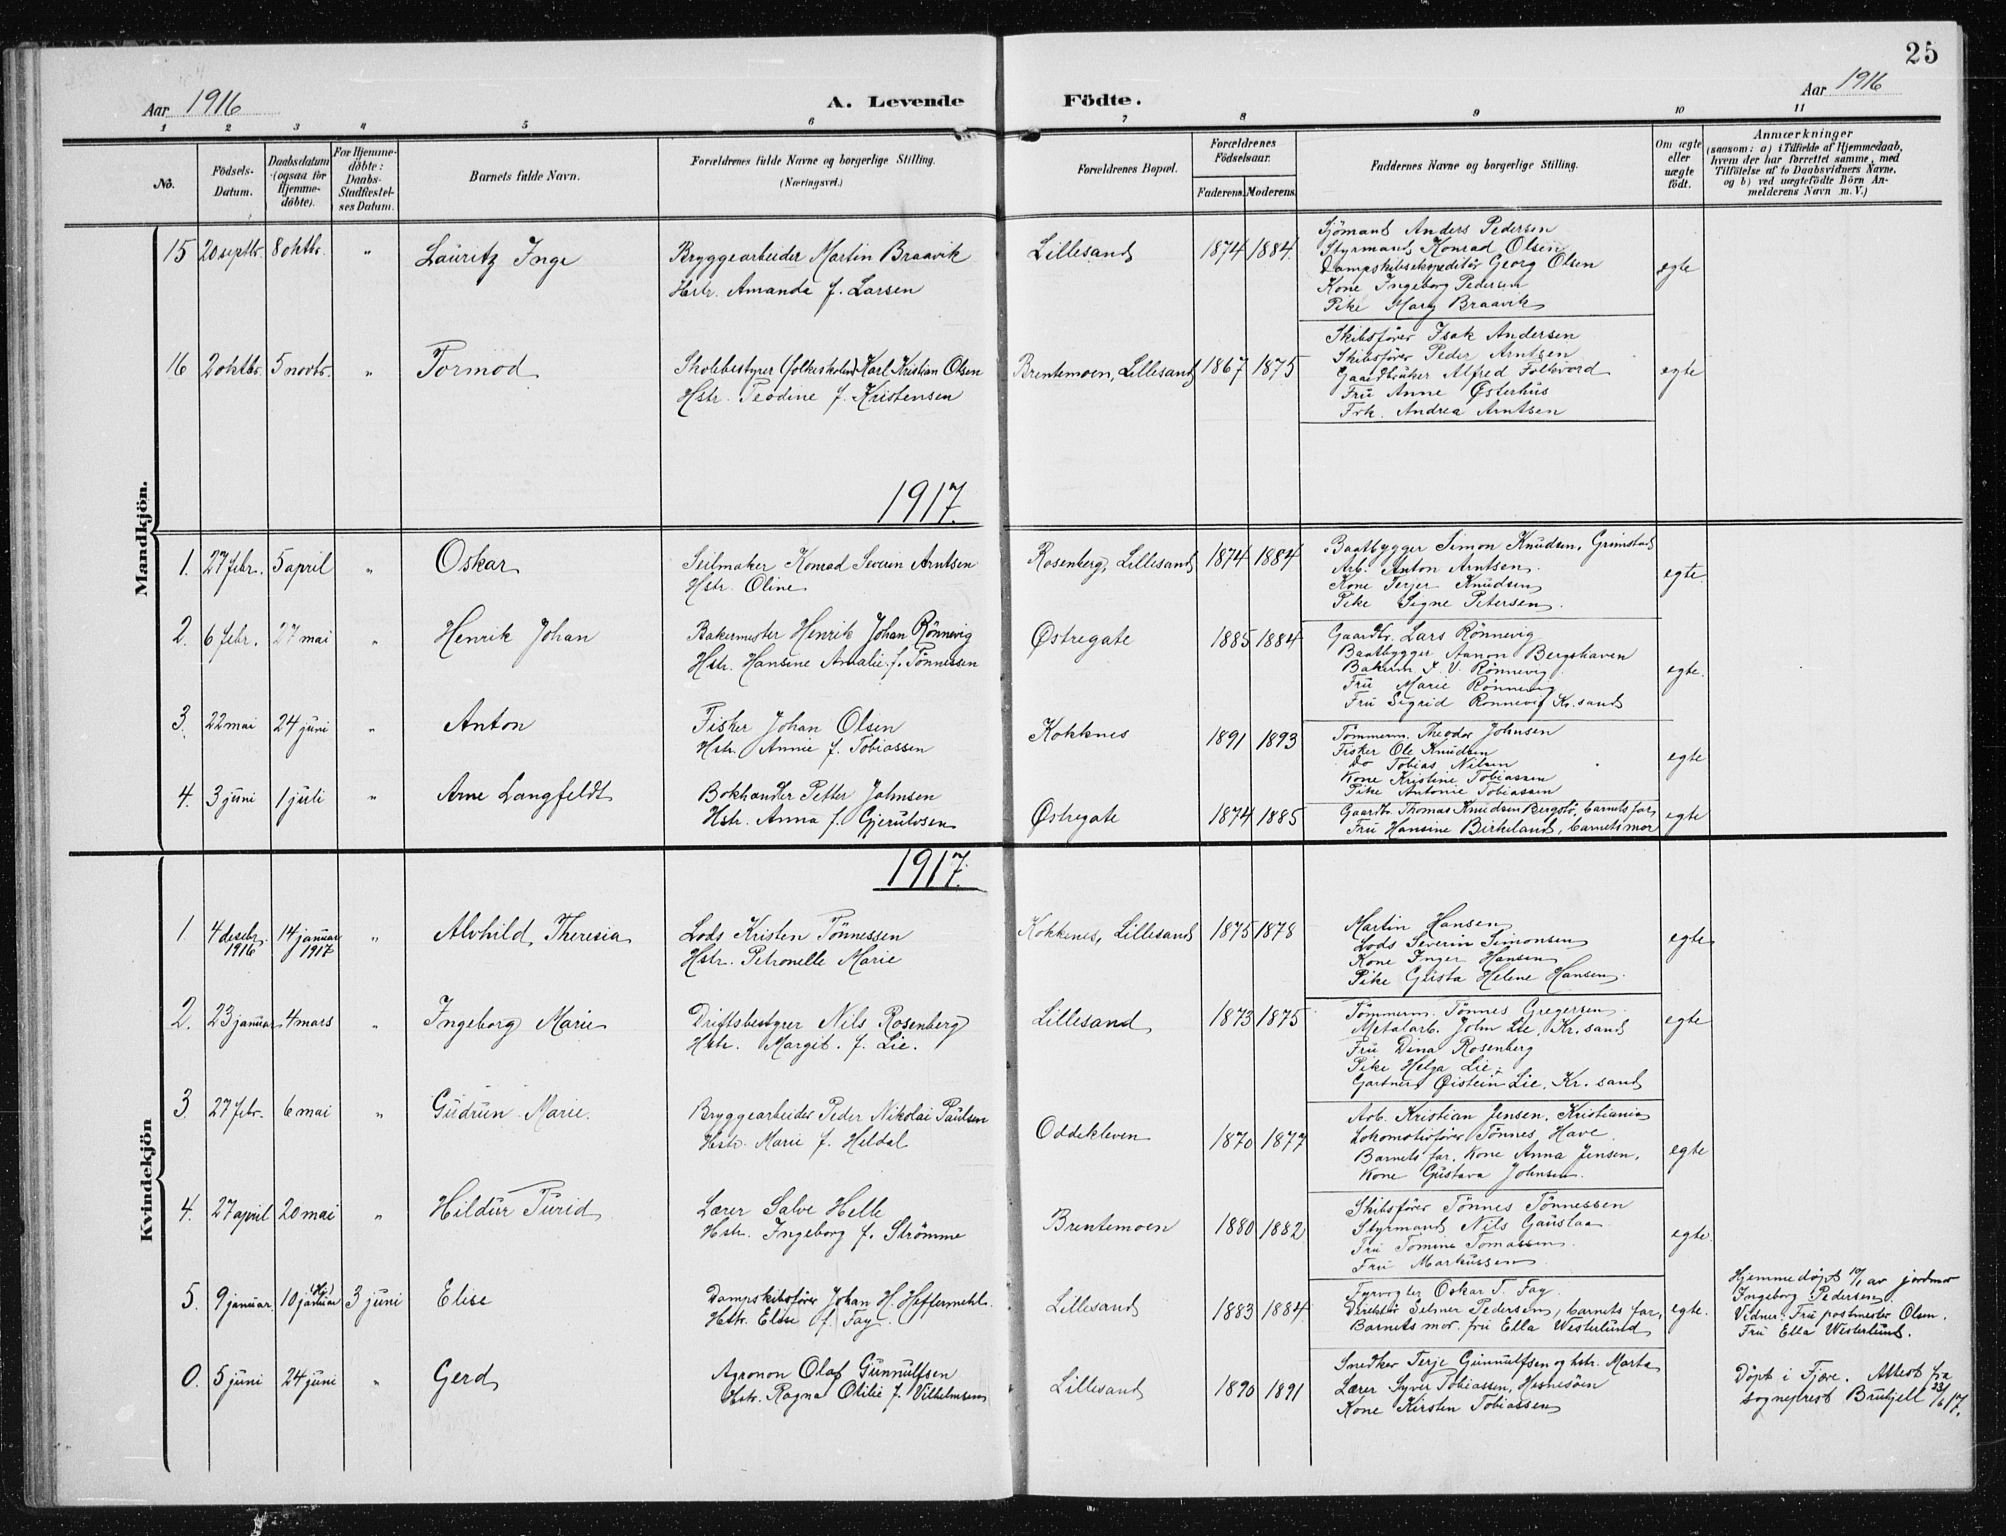 25
Aar 1916
A. Levende Födte.
Aar 1916
1 2 3 4 5 6 7 8 9 10 11
No.
Födsels-
Datum.
Daabsdatum
(ogsaa for
Hjemme-
döbte).
For Hjemme-
döbte:
Daabs-
Stadfæstel-
ses Datum.
Barnets fulde Navn.
Forældrenes fulde Navne og borgerlige Stilling.
(Næringsvei.)
Forældrenes Bopæl.
Forældrenes
Födselsaar.
Faderens. Moderens.
Faddernes Navne og borgerlige Stilling.
Om ægte
eller
uægte
födt.
Anmærkninger
(saasom: a) i Tilfælde af Hjemmedaab,
hvem der har forrettet samme, med
Tilföielse af to Daabsvidners Navne,
og b) ved uægtefödte Börn An-
melderens Navn m. V.)
Mandkjön.
15 20 septbr. 8 oktbr. " Lauritz Inge
Bryggearbeider Martin Braavik
Hstr. Amanda f. Larsen
Lillesand 1874 1884
Sjömand Anders Pedersen
Styrmand Konrad Olsen
Dampskibsekspeditör Georg Olsen
Kone Ingeborg Pedersen
Pike Mary Braavik
egte
16 2 oktbr. 5 novbr. " Tormod
Skolebestyrer (folkeskolen) Karl Kristian Olsen
Hstr. Teodine f. Kristensen
Brentemoen, Lillesand 1867 1875
Skibsförer Isak Andersen
Skibsförer Peder Arntsen
Gaardbruker Alfred Folkvord
Fru Anne Østerhus
Frk. Andrea Arntsen
egte
1917.
1. 27 febr. 5 april " Oskar
Seilmaker Konrad Severin Arntsen
Hstr. Oline
Rosenberg, Lillesand 1874 1884
Baatbygger Simon Knudsen, Grimstad
Arb. Anton Arntsen.
Kone Terjer Knudsen
Pike Signe Petersen.
egte.
2. 6 febr. 27 mai " Henrik Johan
Bakermester Henrik Johan Rönnevig
Hstr. Hansine Amalie f. Tönnessen
Østregate 1885 1884
Gaardbr. Lars Rönnevig
Baatbygger Aanon Bergshaven
Bakerm. J. V. Rönnevig.
Fru Marie Rönnevig
Fru Sigrid Rönnevig Kr.sand
egte.
3. 22 mai 24 juni " Anton
Fisker Johan Olsen
Hstr. Annie f. Tobiassen
Kokknes 1891 1893
Tömmerm. Theodor Johnsen
Fisker Ole Knudsen
Do Tobias Nilsen
Kone Kristine Tobiassen
Pike Antonie Tobiassen
egte
4. 3 juni 1 juli " Arne Langfeldt
Bokhandler Petter Johnsen
Hstr. Anna f. Gjerulvsen
Østregate 1874 1885
Gaardbr. Thomas Knudsen Bergstö, barnets far,
Fru Hansine Birkeland, barnets mor
egte
Kvindekjön
1917.
1. 4 desebr. 1916 14 januar 1917 " Alvhild Theresia
Lods Kristen Tönnessen
Hstr. Petronelle Marie
Kokkenes, Lillesand 1875 1878
Martin Hansen
Lods Severin Simonsen
Kone Inger Hansen
Pike Gusta Helene Hansen.
egte
2. 23 januar 4 mars " Ingeborg Marie
Driftsbestyrer Nils Rosenberg
Hstr. Margit f. Lie.
Lillesand 1873 1875
Tömmerm. Tönnes Gregersen.
Metalarb. John Lie, Kr.sand
Fru Dina Rosenberg
Pike Helga Lie,
Gartner Øistein Lie, Kr. sand
egte
3. 27 febr. 6 mai " Gudrun Marie.
Bryggearbeider Peder Nikolai Paulsen
Hstr. Marie f. Heldal
Oddekleven 1870 1877
Arb. Kristian Jensen, Kristiania
Lokomotivförer Tönnes Have.
Barnets far, Kone Anna Jensen,
Kone Gustava Johnsen.
egte
4. 27 april 20 mai " Hildur Turid
Lærer Salve Helle
Hstr. Ingeborg f. Strömme
Brentemoen 1880 1882
Skibsförer Tönnes Tönnessen
Styrmand Nils Gauslaa
Fru Tomine Tomassen.
Fru Markussen
egte.
5. 9 januar 10 januar 3 juni Elise
Dampskibsförer Johan H. Heffermehl.
Hstr. Elise f. Fay.
Lillesand 1883 1884.
Fyrvogter Oskar T. Fay.
Direktör Selmer Pedersen, barnets far,
Barnets mor. fru Ella Westerlund
egte.
Hjemmedöpt 10/1 av jordmor
Ingeborg Pedersen.
Vidner: Fru postmester Olsen.
Fru Ella Westerlund.
0. 5 juni 24 juni " Gerd
Agronon Olaf Gunnulfsen
Hstr. Ragna Otilie f. Vilhelmsen
Lillesand 1890 1891
Snedker Terje Gunnulfsen og hstr. Marta
Lærer Syver Tobiassen, Hesnesöen
Kone Kirsten Tobiassen
Döpt i Fjære. Attest fra
sogneprest Brukjell 23/6 17.